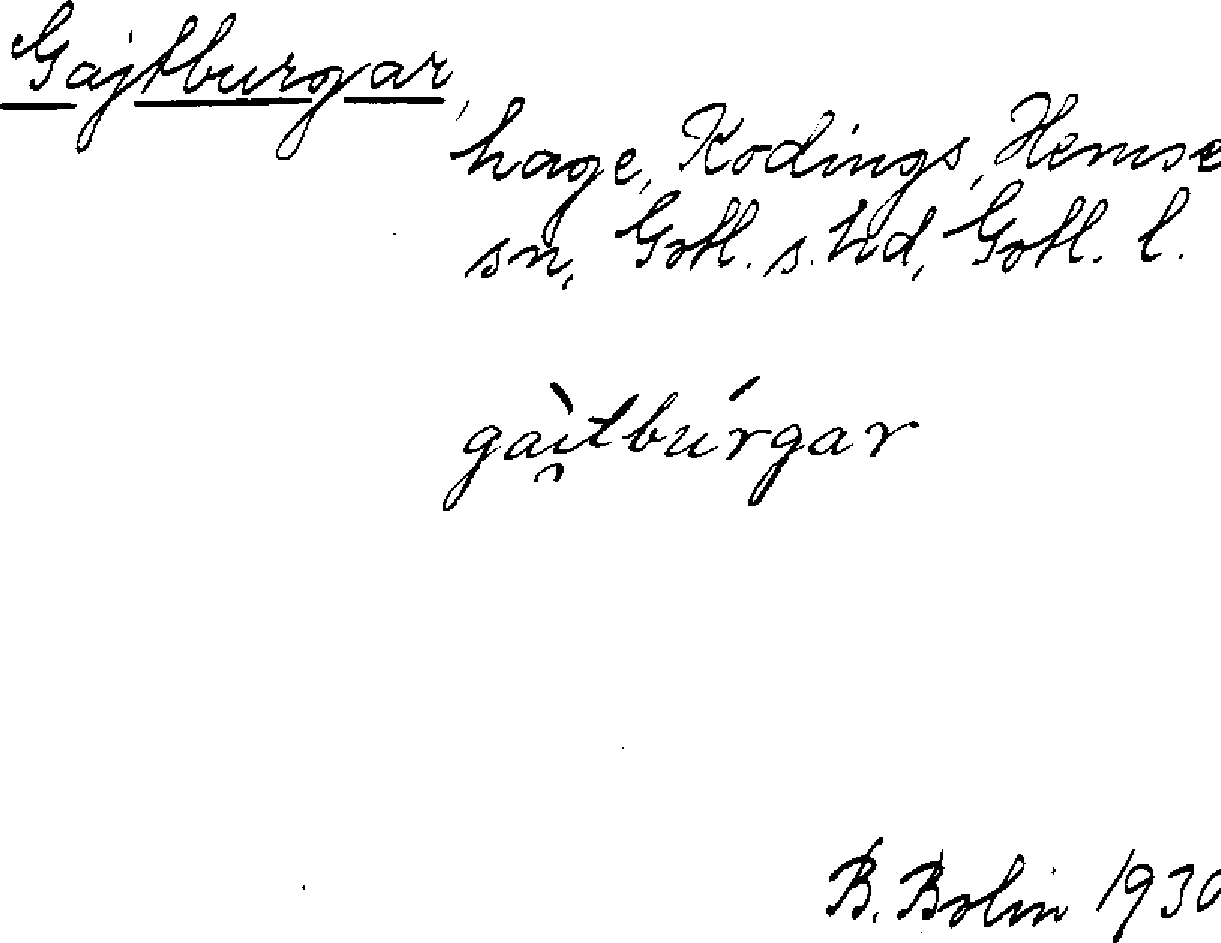 Gajtburgar,
hage, Kodings, Hemse
sn, Gotl. s. hd, Gotl. l.
gài̯tbúrgar
B. Bolin 1930